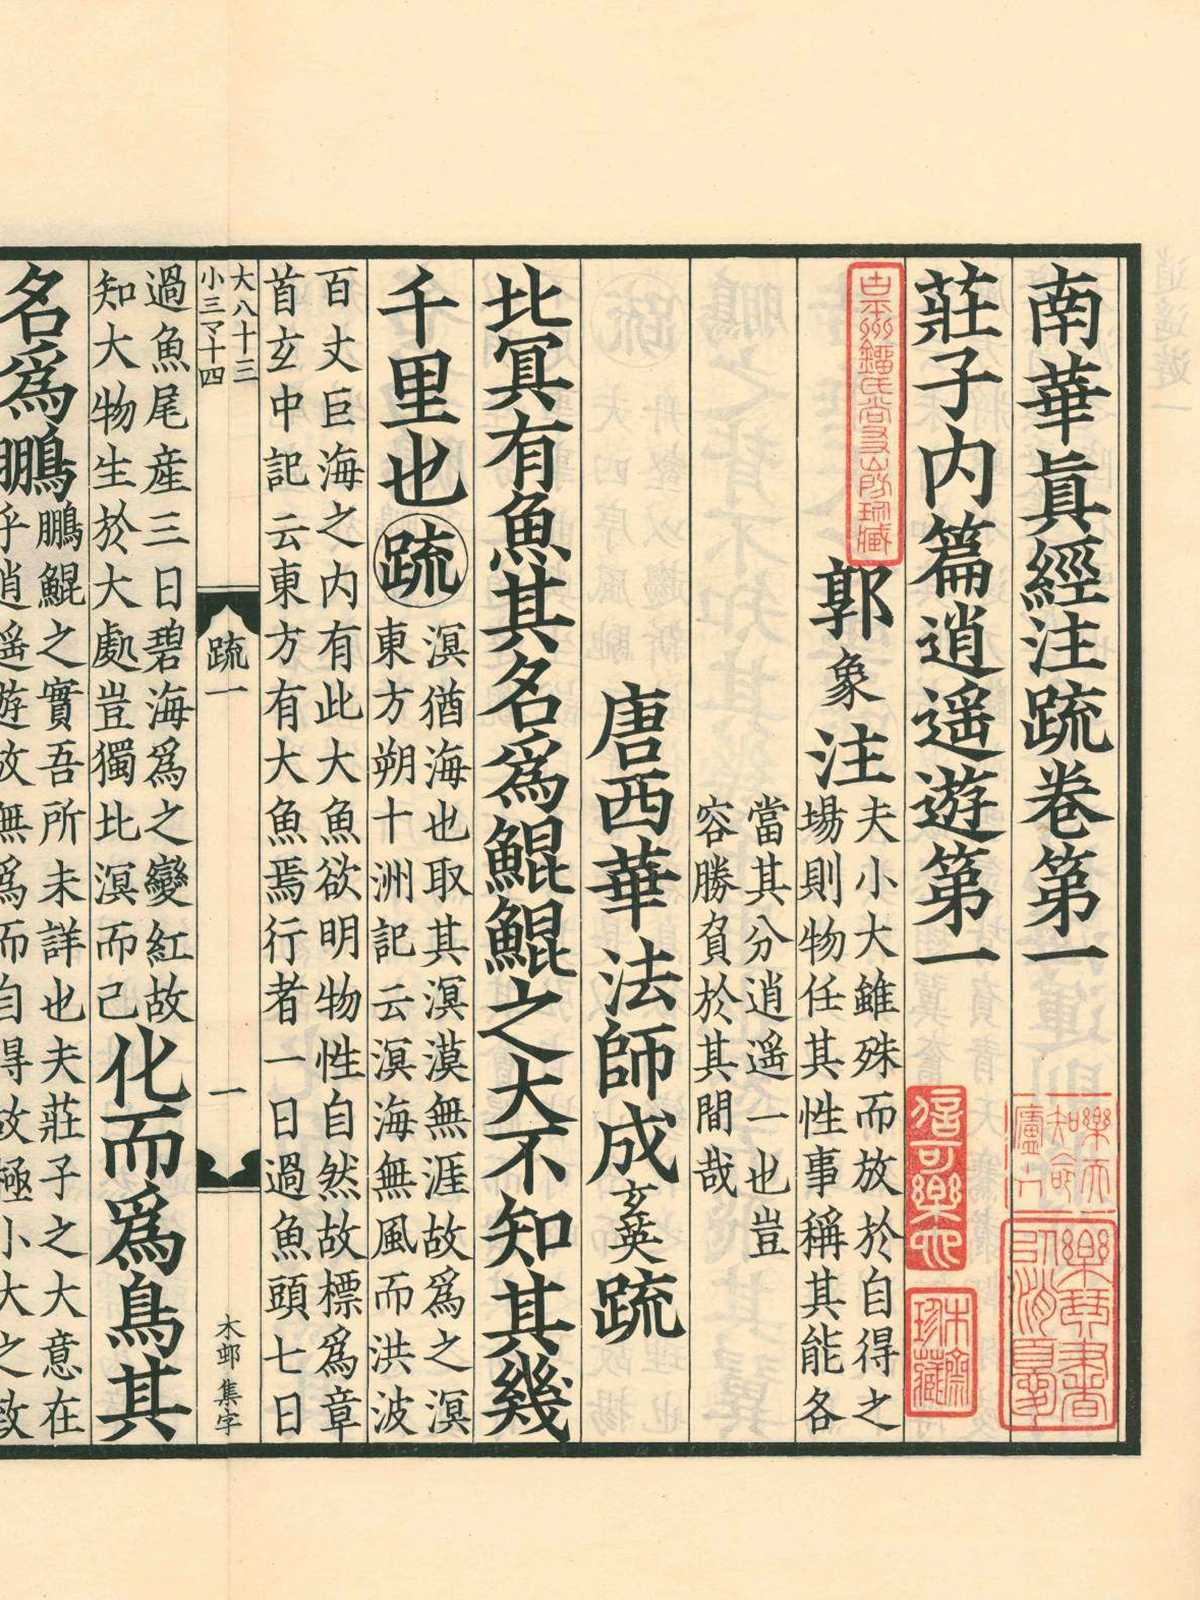 南華眞經注疏卷第一
莊子内篇逍遙遊第一
郭象注
夫小大雖殊而放於自得之
場則物任其性事稱其能各
當其分逍遙一也豈
容勝負於其間哉
唐西華法師成玄英疏
北冥有魚其名爲鯤鯤之大不知其幾
千里也疏
溟猶海也取其溟漠無涯故爲之溟
東方朔十洲記云溟海無風而洪波
百丈巨海之内有此大魚欲明物性自然故標爲章
首玄中記云東方有大魚焉行者一日過魚頭七日
大八十三
小三マ十四
疏一
一
木邺集字
過魚尾産三日碧海爲之變紅故
知大物生於大處豈獨北溟而已
化而爲鳥其
名爲鵬
鵬鯤之實吾所未詳也夫莊子之大意在
乎逍遥遊放無爲而自得故極小大之致
信可樂也
樂琴書以消夏
樂天知命廬
珍藏